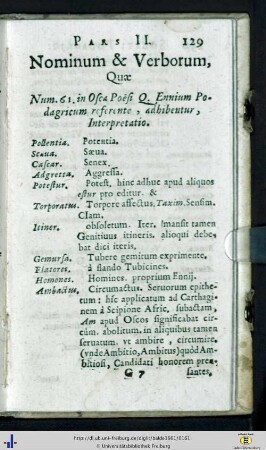 PARS II. 129
Nominum & Verborum,
Quæ
Num. 61. in Osca Poësi Q. Ennium Po-
dagricum referente, adhibentur,
Interpretatio.
Pollentia. Potentia.
Scaua. Sæua.
Cascar. Senex.
Adgretta. Aggressa.
Potestur. Potest. hinc adhuc apud aliquos
estur pro editur. &
Torporatus. Torpore affectus, Taxim. Sensim.
Clam.
Itiner. obsoletum. Iter. Imansit tamen
Genitiuus itineris. alioqui debe-
bat dici iteris.
Gemursa. Tubere gemitum exprimente.
Flatores. à flando Tubicines.
Hemones. Homines. proprium Ennij.
Ambactus. Circumactus. Seruorum epithe-
tum: hîc applicatum ad Carthagi-
nem à Scipione Afric. subactam,
Am apud Oscos significabat cir-
cùm. abolitum. in aliquibus tamen
seruatum. vt ambire, circumire,
(vnde Ambitio, Ambitus) quòd Am-
bitiosi, Candidati honorem pren-
G 7 santes,
http://dl.ub.uni-freiburg.de/diglit/balde1661/0161
Universitätsbibliothek Freiburg